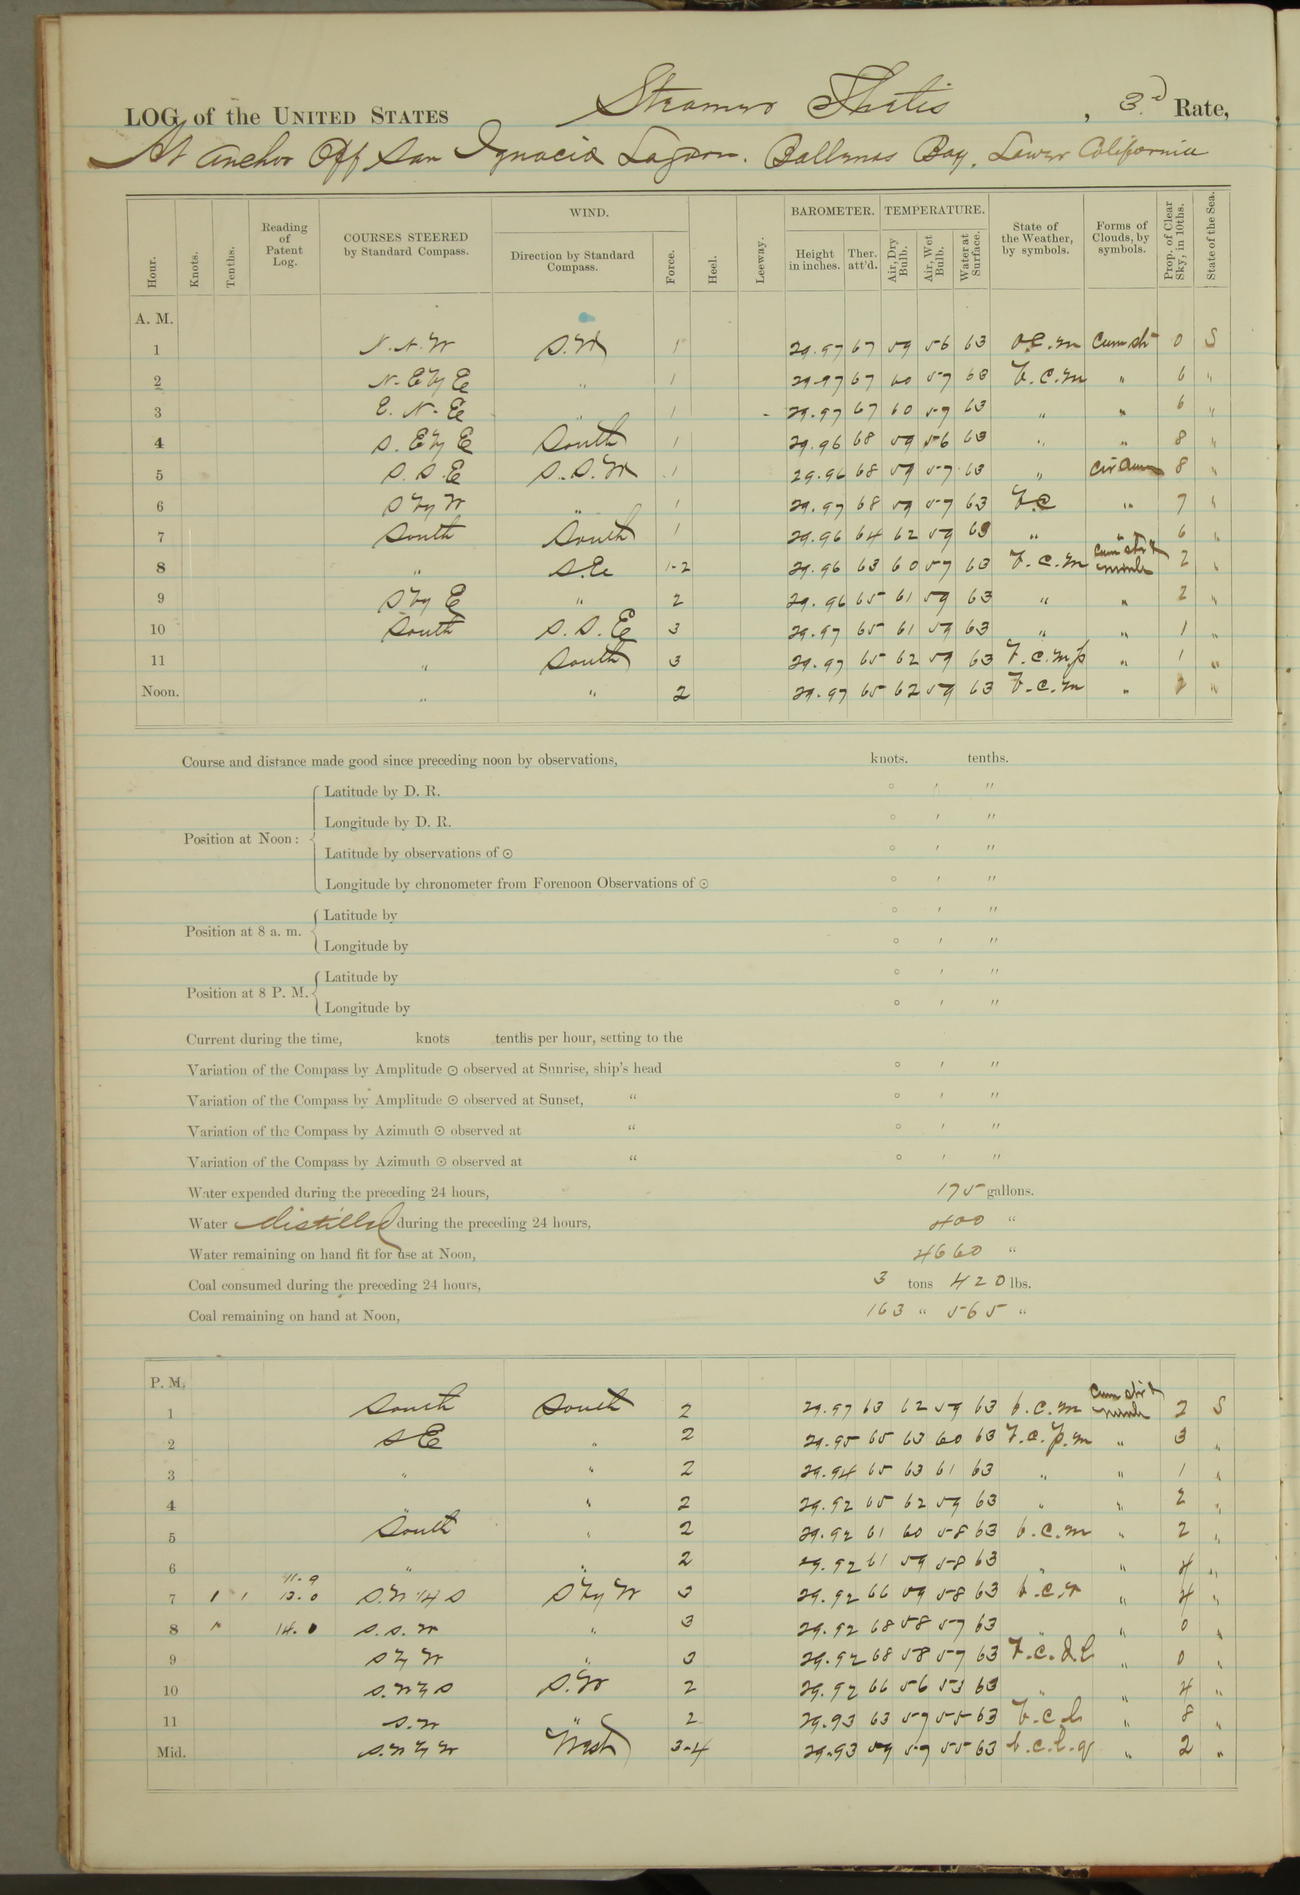 LOG of the UNITED STATES Steamer Thetis, 3d Rate,
At anchor Off San Ignacio Lagoon. Ballenas Bay, Lower California
WIND. BAROMETER. TEMPERATURE.
Hour. Knots. Tenths. Reading of Patent Log. COURSES STEERED by Standard Compass. Direction by Standard Compass. Force. Heel. Leeway. Height in inches. Ther. att'd. Air, Dry Bulb. Air, Wet Bulb. Water at Surface. State of the Weather, by symbols. Forms of Clouds, by symbols. Prop. of Clear Sky, in 10ths. State of the Sea.
A. M.
1 N.N.W S.W 1 29.97 67 59 56 63 o.c.m Cum str 0 S
2 N.E by E " 1 29.97 67 60 57 63 b.c.m " 6 "
3 E.N.E " 1 29.97 67 60 57 63 " " 6 "
4 S.E by E South 1 29.96 68 59 56 63 " " 8 "
5 S.S.E S.S.W 1 29.96 68 59 57 63 " Cir Cum 8 "
6 S by W " 1 29.97 68 59 57 63 b.c " 7 "
7 South South 1 29.96 64 62 59 63 " " 6 "
8 " S.E 1-2 29.96 63 60 57 63 b.c.m Cum str & nimb 2 "
9 S by E " 2 29.96 65 61 59 63 " " 2 "
10 South S.S.E 3 29.97 65 61 59 63 " " 1 "
11 " South 3 29.97 65 62 59 63 b.c.m.p " 1 "
Noon. " " 2 29.97 65 62 59 63 b.c.m " 2 "
Course and distance made good since preceding noon by observations, knots. tenths.
Position at Noon: Latitude by D. R. ° ′ ″
Longitude by D. R. ° ′ ″
Latitude by observations of ⊙ ° ′ ″
Longitude by chronometer from Forenoon Observations of ⊙ ° ′ ″
Position at 8 a. m. Latitude by ° ′ ″
Longitude by ° ′ ″
Position at 8 P. M. Latitude by ° ′ ″
Longitude by ° ′ ″
Current during the time, knots tenths per hour, setting to the
Variation of the Compass by Amplitude ⊙ observed at Sunrise, ship's head ° ′ ″
Variation of the Compass by Amplitude ⊙ observed at Sunset, " ° ′ ″
Variation of the Compass by Azimuth ⊙ observed at " ° ′ ″
Variation of the Compass by Azimuth ⊙ observed at " ° ′ ″
Water expended during the preceding 24 hours, 175 gallons.
Water distilled during the preceding 24 hours, 400 "
Water remaining on hand fit for use at Noon, 4660 "
Coal consumed during the preceding 24 hours, 3 tons 420 lbs.
Coal remaining on hand at Noon, 163 " 565 "
P. M.
1 South South 2 29.97 63 62 59 63 b.c.m Cum str & nimb 2 S
2 SE " 2 29.95 65 63 60 63 b.c.p.m " 3 "
3 " " 2 29.94 65 63 61 63 " " 1 "
4 " " 2 29.92 65 62 59 63 " " 2 "
5 South " 2 29.92 61 60 58 63 b.c.m " 2 "
6 " " 2 29.92 61 59 58 63 " " 4 "
7 1 1 11.9 13.0 S.W 1/4 S S by W 3 29.92 66 59 58 63 " 4 "
8 14.0 S.S.W " 3 29.92 68 58 57 63 " " 0 "
9 S by W " 3 29.92 68 58 57 63 " 0 "
10 S.W by S S.W 2 29.92 66 56 53 63 " " 4 "
11 S.W " 2 29.93 63 57 55 63 " 8 "
Mid. S.W by W West 3-4 29.93 59 57 55 63 b.c.l.q " 2 "